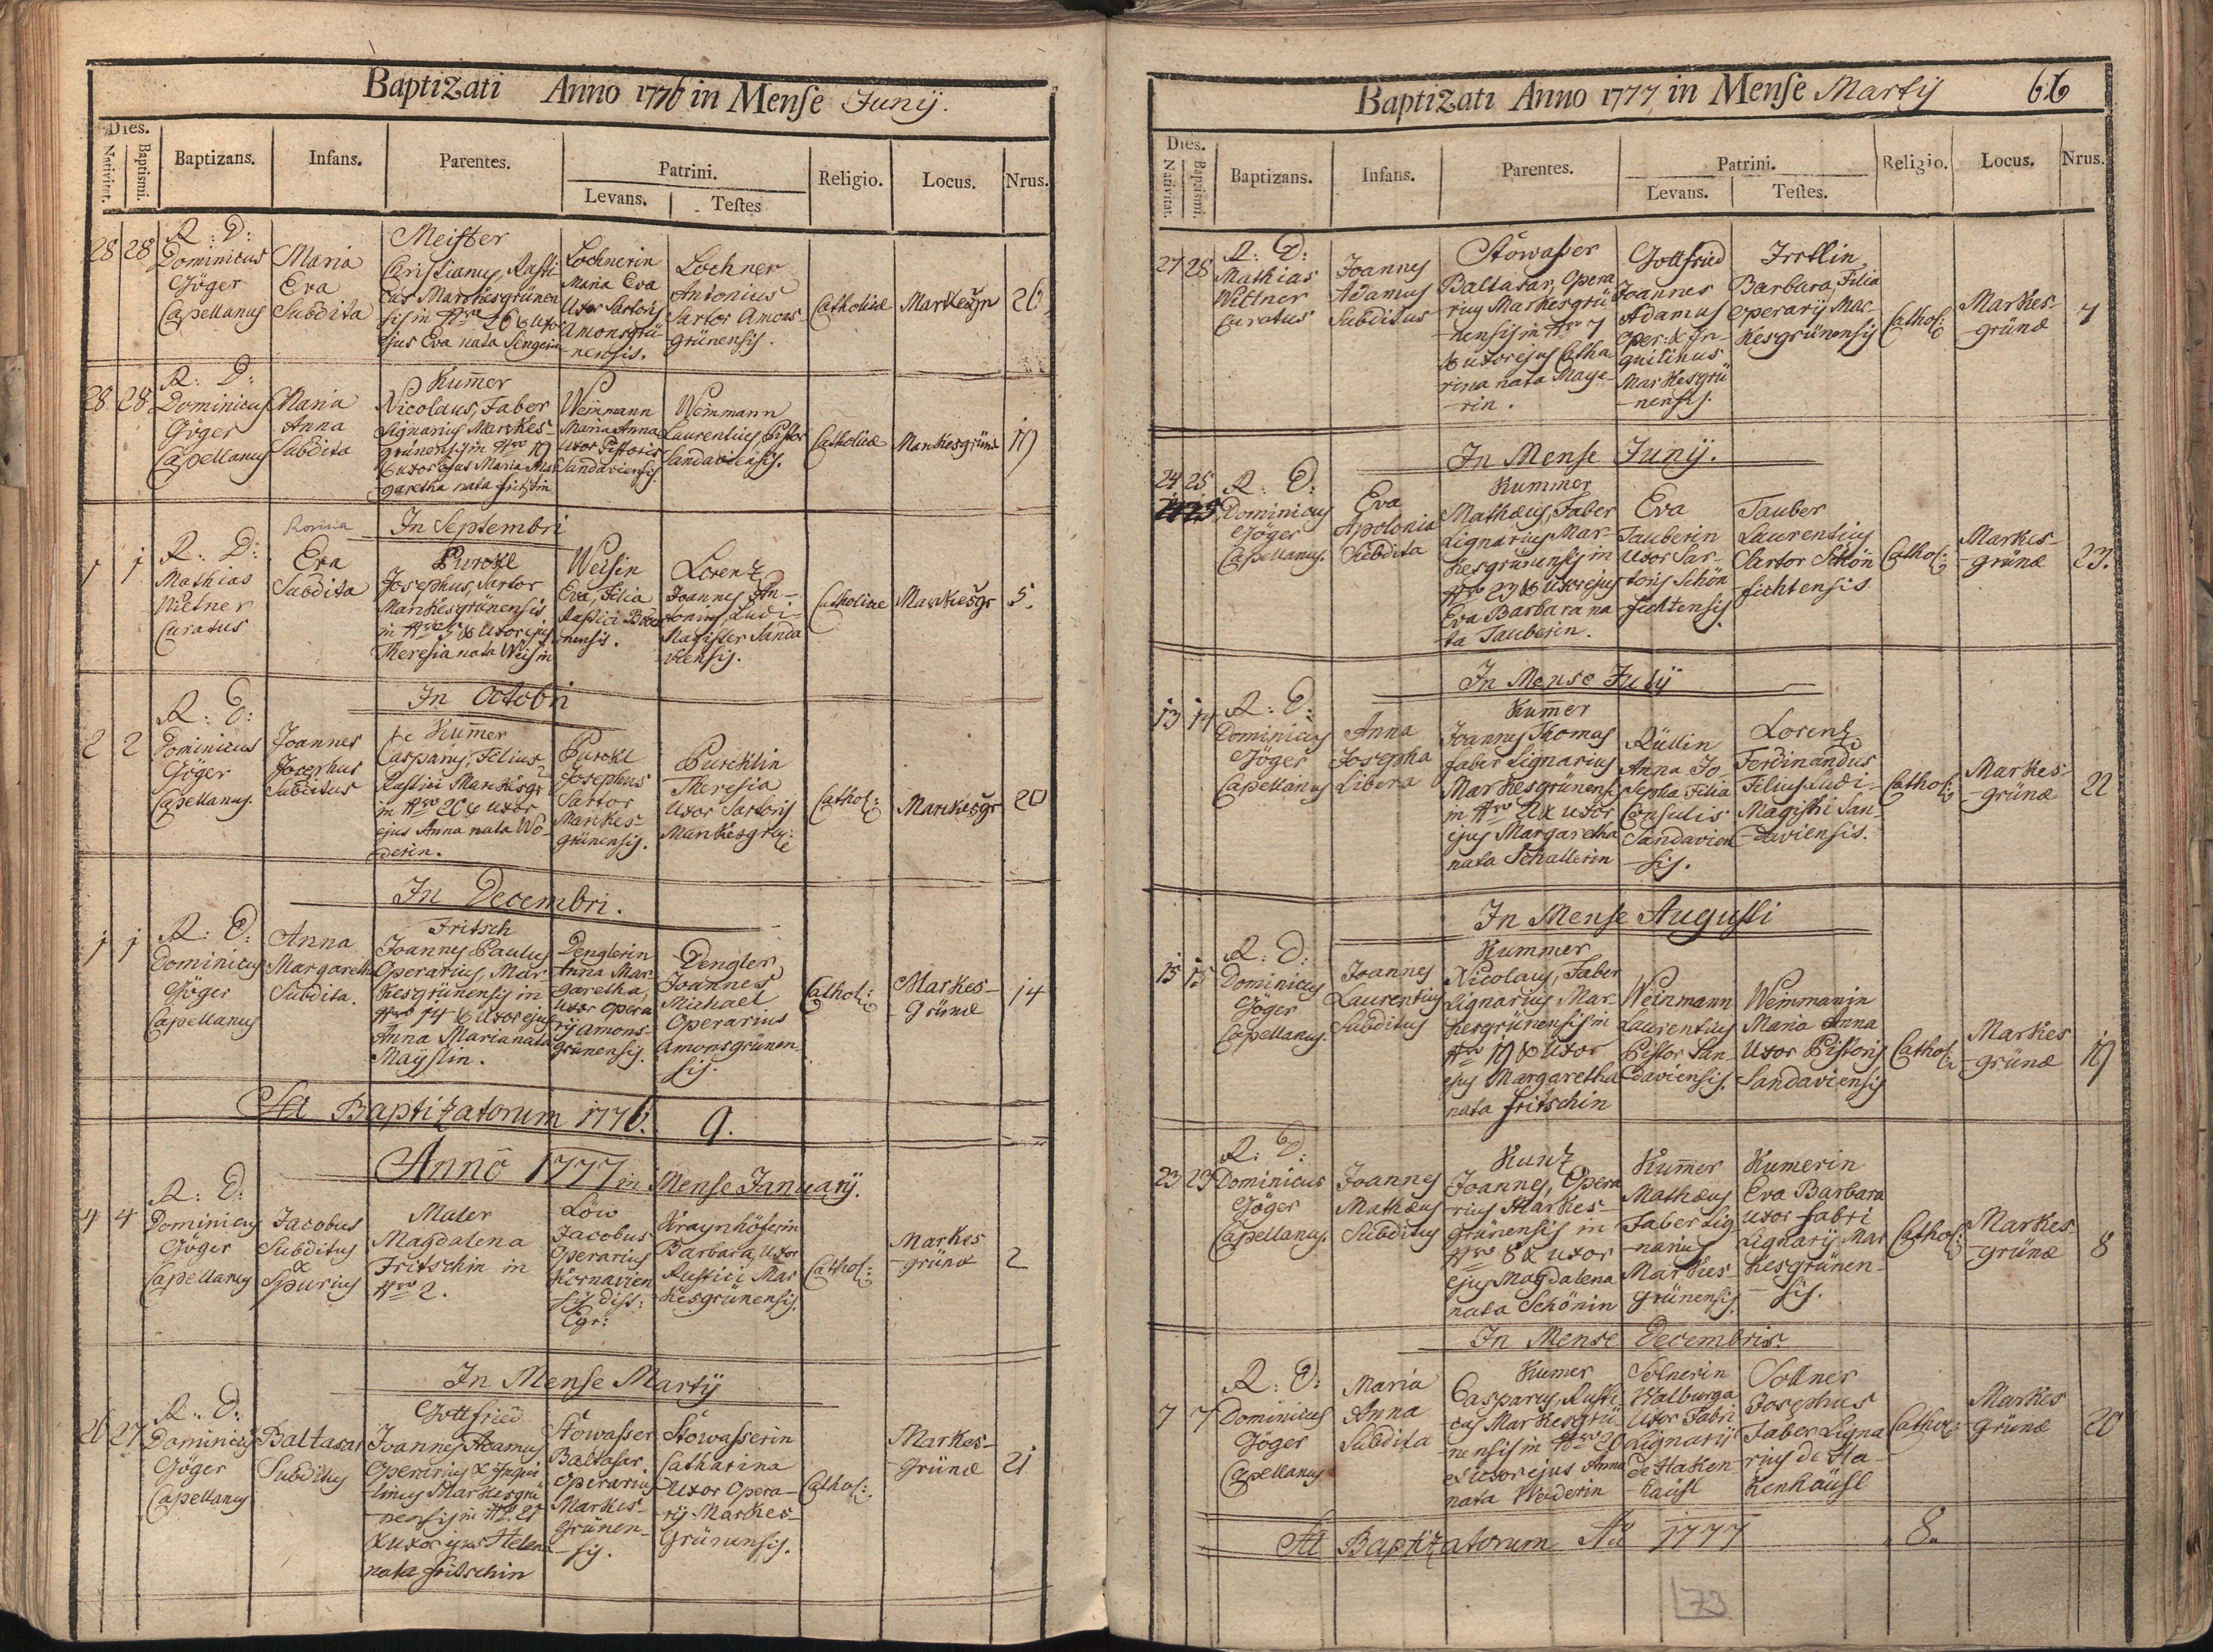 Baptizati Anno 1776 in Mense Junij.
Dies.
Nativitat.
Baptismi.
Baptizans.
Infans.
Parentes.
Patrini.
Levans.
Testes
Religio.
Locus.
Nrus.
28 28
R: D:
Dominicus
Göger
Capellanus
Maria
Eva
Subdita
Meister
Christianus, Rusti
cus Markesgrünen
sis in Nro 26 & uxor
ejus Eva nata Sengerin
Lochnerin
Maria Eva
Uxor Sartoris
Amonsgrü-
nensis.
Lochner
Antonius
Sartor Amons-
grünensis.
Catholicæ
Markesgr
26
28 28
R: D:
Dominicus
Göger
Capellanus
Maria
Anna
Subdita
Kum̄er
Nicolaus, Faber
Lignarius Markes-
grünensis in Nro 19
& uxor ejus Maria Mar
garetha nata Fritschin
Weinmann
Maria Anna
Uxor Pistoris
Sandaviensis
Weinmann
Laurentius, Pistor
Sandaviensis.
Catholicæ
Markesgrünæ
19
In Septembri
1 1
R: D:
Mathias
Wittner
Curatus
Rosina
Eva
Subdita
Purckl
Josephus, Sartor
Markesgrünensis
in Nro 5 & Uxor ejus
Theresia nata Weisin
Weisin
Eva, Filia
Rustici
nensis.
Lorenz
Joannes An-
tonius, Ludi-
Magister Sanda
viensis.
Catholicæ
Markesgr
5.
In Octobri
2 2
R: D:
Dominicus
Göger
Capellanus.
Joannes
Josephus
Subditus
Kum̄er
Casparus, Filius
Rustici Markesgr
in Nro 20 & uxor
ejus Anna nata Wö-
derin.
Purckl
Josephus
Sartor
Markes-
grünensis.
Purcklin
Theresia
Uxor Sartoris
Markesgr:
Cathol:
Markesgr
20
In Decembri.
1 1
R: D:
Dominicus
Göger
Capellanus
Anna
Margareth
Subdita.
Fritsch
Joannes Paulus
Operarius, Mar-
kesgrünensis in
Nro 14 & Uxor ejus
Anna Maria nata
Mayslin.
Denglerin
Anna Mar-
garetha,
Uxor Opera
rij Amons-
grünensis.
Dengler
Joannes
Michael
Operarius
Amonsgrünen-
sis.
Cathol:
Markes-
Grünæ
14
Sa Baptizatorum 1776. 9.
Anno 1777 in Mense Januarij.
4 4
R: D:
Dominicus
Göger
Capellanus
Jacobus
Subditus
&
Spurius
Mater
Magdalena
Fritschin in
Nro 2.
Löw
Jacobus
Operarius
Kornavien
sis dist:
Egr:
Kraynhöferin
Barbara, Uxor
Rustici Mar
kesgrünensis.
Cathol:
Markes
-grünæ
2
In Mense Martij
26 27
R: D:
Dominicus
Göger
Capellanus
Baltasar
Subditus
Gottfried
Joannes Adamus
Operarius & Inqui
linus Markesgrü
nensis in Nro 21
& Uxor ejus Helena
nata Fritschin
Stöwasser
Baltasar.
Operarius
Markes-
Grünen-
sis.
Stöwasserin
Catharina
Uxor Opera-
rij Markes-
Grünensis.
Cathol:
Markes-
Grünæ
21
Baptizati Anno 1777 in Mense Martij 66
Dies.
Nativitat.
Baptismi.
Baptizans.
Infans.
Parentes.
Patrini.
Levans.
Testes.
Religio.
Locus.
Nrus.
27 28
R: D:
Mathias
Wittner
Curatus
Joannes
Adamus
Subditus
Stöwasser
Baltasar, Opera
rius Markesgrü
nensis in Nro 7
& uxor ejus Catha
rina nata Maye-
rin.
Gottfried
Joannes
Adamus
Oper: & In-
quilinus
Markesgrü
-nensis.
Irrllin
Barbara, Filia
Operarij Mar-
kesgrünensis
Cathol:
Markes
-grünæ
7
In Mense Junij.
24 25
R: D:
Dominicus
Göger
Capellanus.
Eva
Apolonia
Subdita
Kummer
Mathæus, Faber
Lignarius Mar-
kesgrünensis in
Nro 23 & Uxor ejus
Eva Barbara na
ta Tauberin.
Eva
Tauberin
Uxor Sar-
toris Schön
fichtensis.
Tauber
Laurentius
Sartor Schön
fichtensis
Cathol:
Markes-
-grünæ
23.
In Mense Julij
13 14
R: D:
Dominicus
Göger
Capellanus
Anna
Josepha
Libera
Kum̄er
Joannes Thomas
Faber Lignarius
Markesgrünensi
in Nro 22 & uxor
ejus Margaretha
nata Schallerin
Rüllin
Anna Jo-
sepha Filia
Consulis
Sandavien
-sis.
Lorenz
Ferdinandus
Filius Ludi-
Magistri San-
-daviensis.
Cathol:
Markes-
-grünæ
22
In Mense Augusti
15 15
R: D:
Dominicus
Göger
Capellanus.
Joannes
Laurentius
Subditus
Kummer
Nicolaus, Faber
Lignarius Mar-
kesgrünensis in
Nro 19 & Uxor
ejus Margaretha
nata Fritschin
Weinmann
Laurentius
Pistor San-
daviensis.
Weinmanin
Maria Anna
Uxor Pistoris
Sandaviensis
Cathol:
Markes
-grünæ
19
23 23
R: D:
Dominicus
Göger
Capellanus.
Joannes
Mathæus
Subditus
Kunz
Joannes, Opera
rius Markes-
grünensis in
Nro 8 & uxor
ejus Magdalena
nata Schönin
Kum̄er
Mathæus
Faber Lig-
-narius
Markes-
grünensis.
Kumerin
Eva Barbara
Uxor Fabri
Lignarij Mar
kesgrünen-
-sis.
Cathol:
Markes-
-grünæ
8
In Mense Decembris.
7 7
R: D:
Dominicus
Göger
Capellanus
Maria
Anna
Subdita
Kumer
Casparus, Rusti
cus Markesgrü
nensis in Nro 20
& Uxor ejus Anna
nata Wederin
Solnerin
Walburga
Uxor Fabri
Lignarij
de Haken-
häusl
Sollner
Josephus
Faber Ligna
rius de Ha-
kenhäusl
Cathol:
Markes
Grünæ
20
Sa Baptizatorum Ao 1777 8.
73